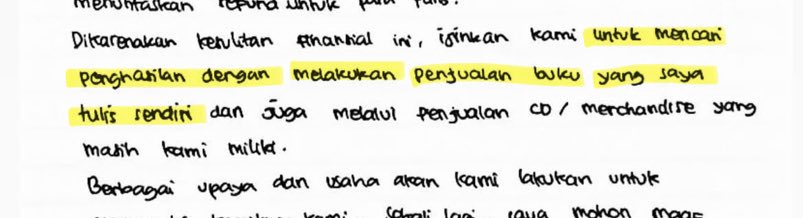 menuntaskan refund untuk para fans.
Dikarenakan kesulitan finansial ini, izinkan kami untuk mencari
penghasilan dengan melakukan penjualan buku yang saya
tulis sendiri dan juga melalui penjualan CD / merchandise yang
masih kami miliki.
Berbagai upaya dan usaha akan kami lakukan untuk
kami. Sekali lagi saya mohon maaf